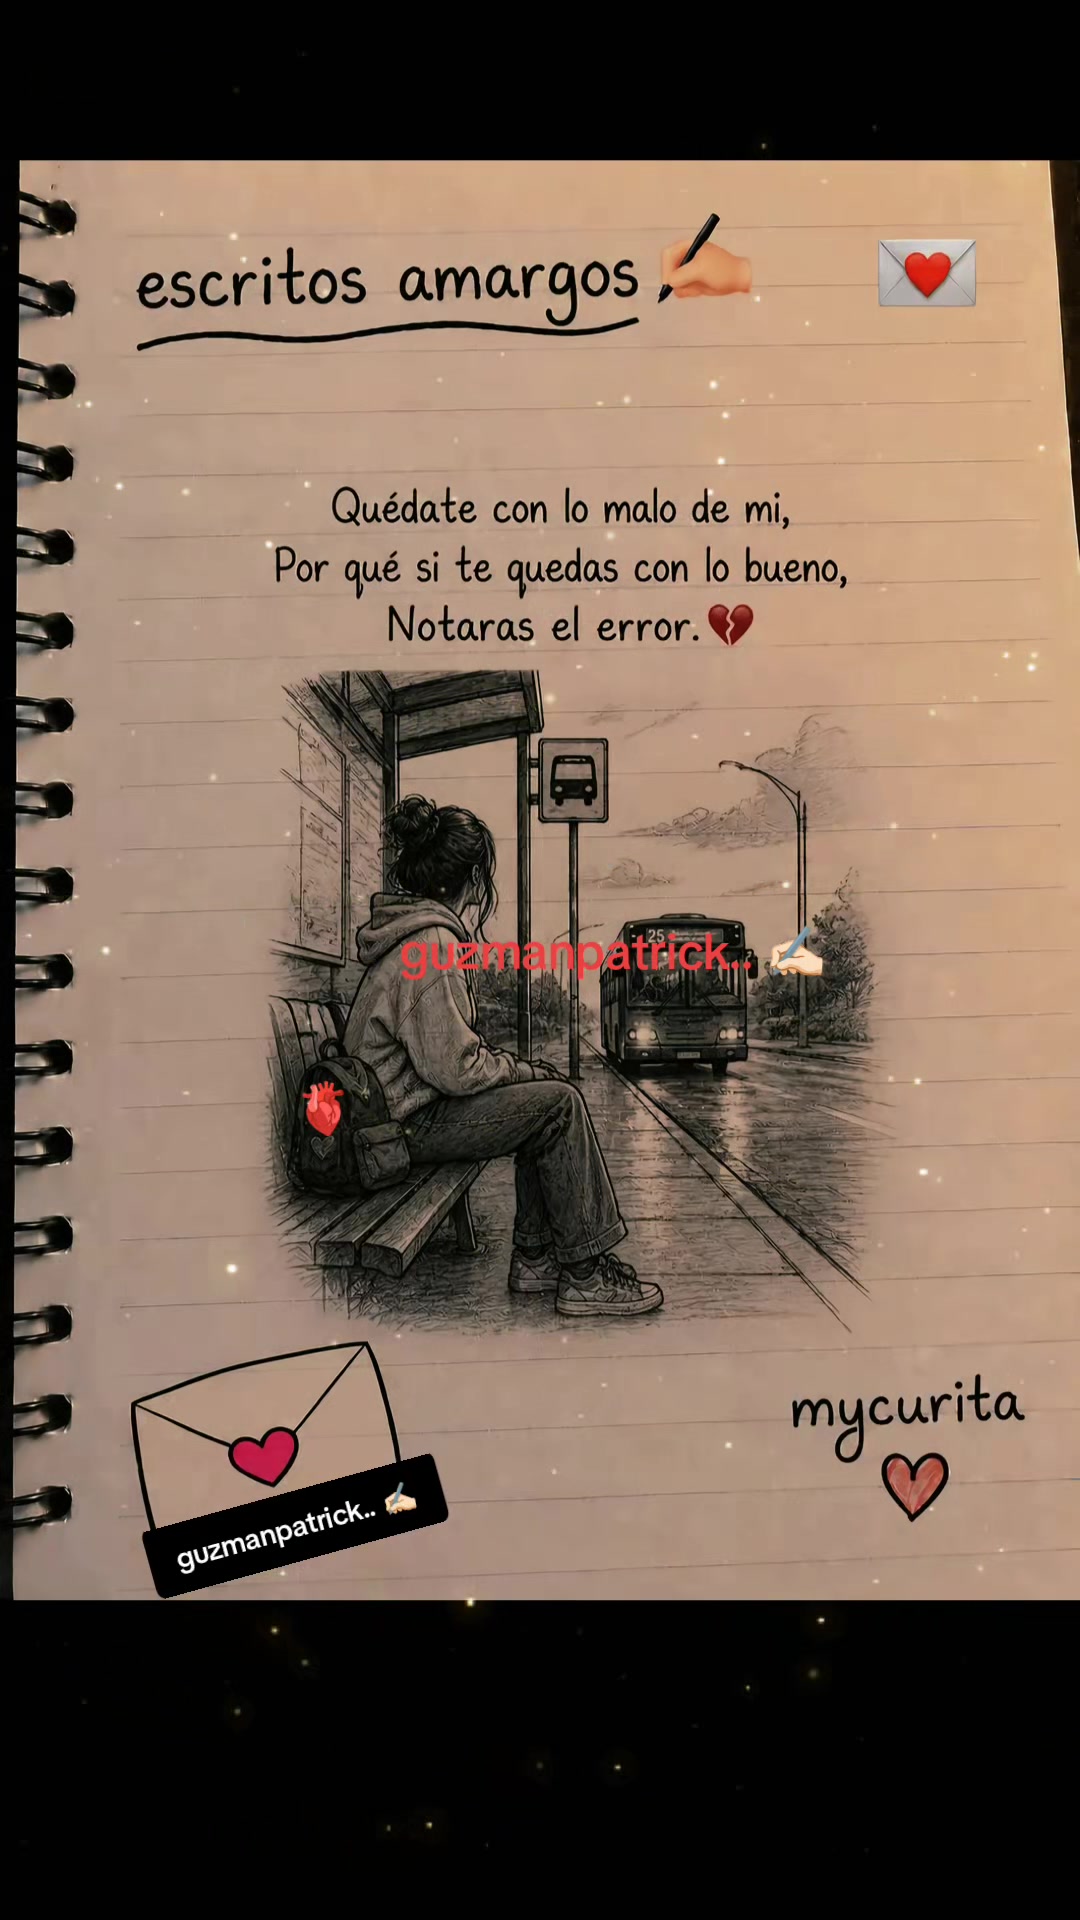 escritos amargos
Quédate con lo malo de mi,
Por qué si te quedas con lo bueno,
Notaras el error.
25
guzmanpatrick..
mycurita
guzmanpatrick..